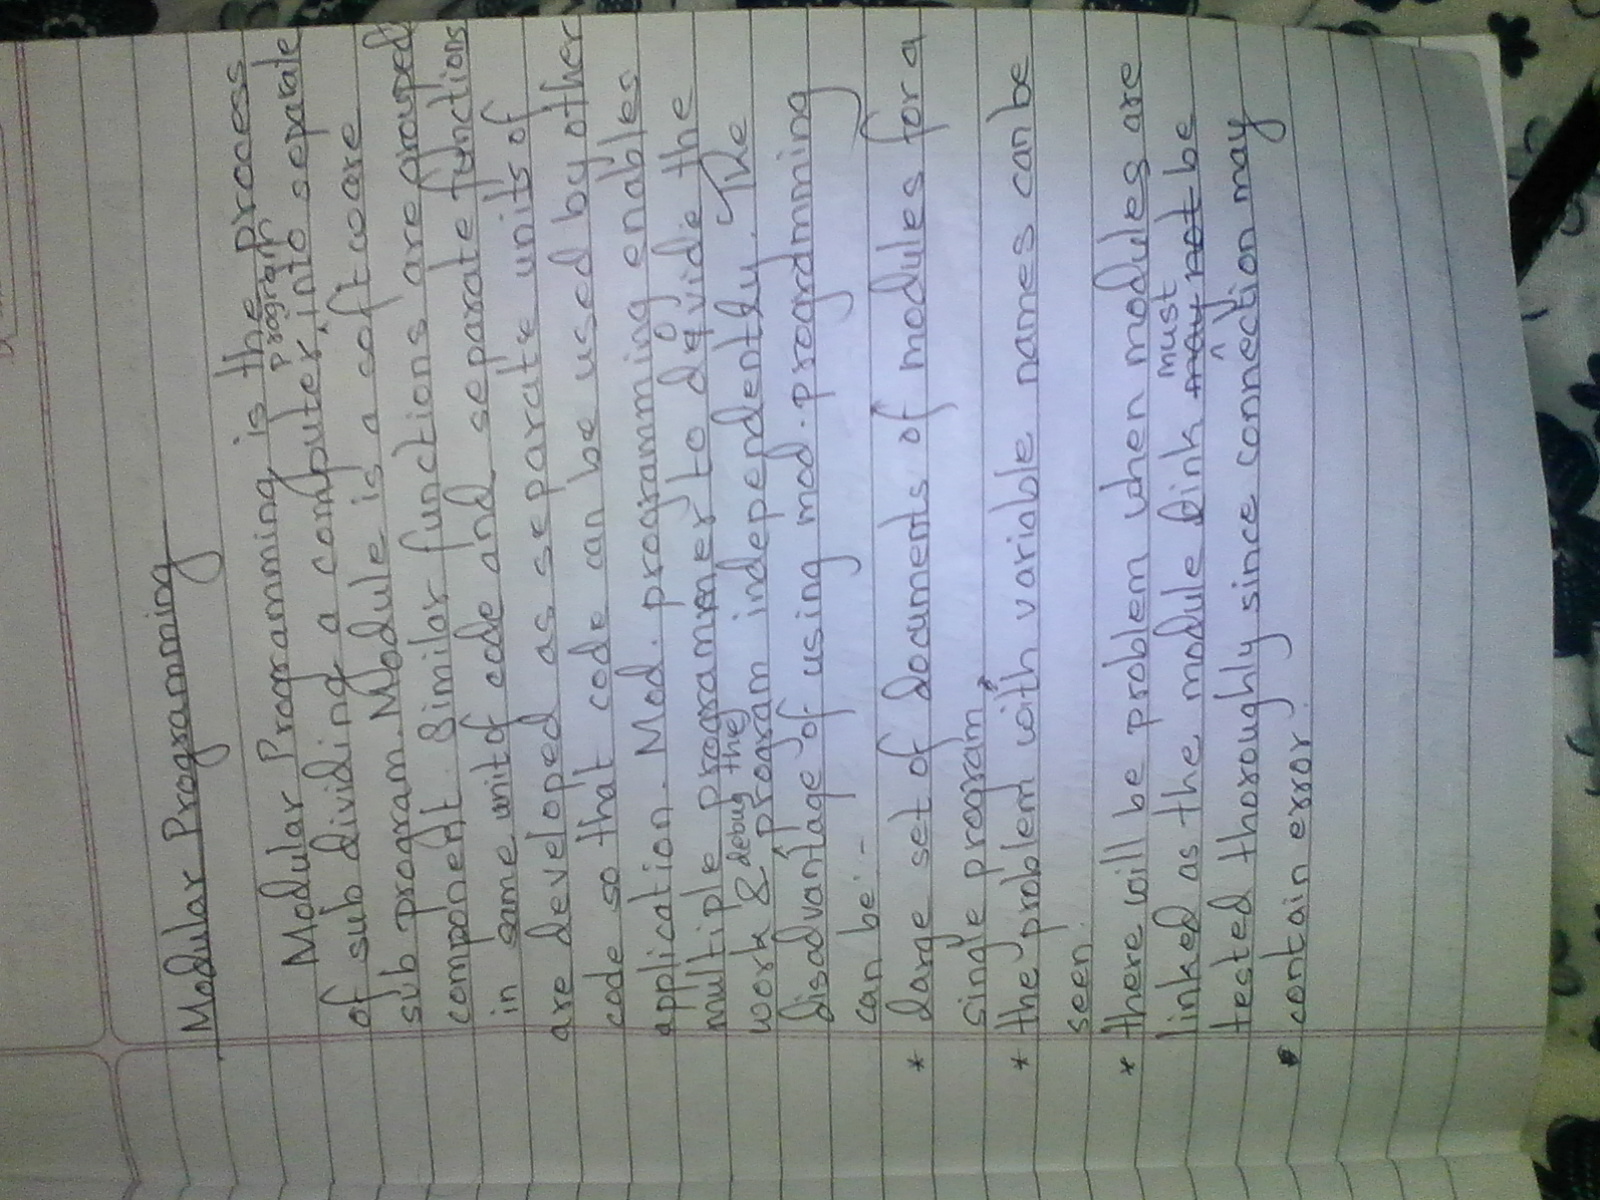 Modular Programming
Modular Programming is the process
of sub dividing a computer program into separate
sub program. Module is a software
component. Similar functions are grouped
in same unit of code and separate functions
are developed as separate units of
code so that code can be used by other
application. Mod. programming enables
multiple programmer to devide the
work & debug the program independently. The
disadvantage of using mod. programming
can be :-
* Large set of documents of modules for a
single program.
* the problem with variable names can be
seen.
* there will be problem when modules are
linked as the module link may not must be
tested thoroughly since connection may
contain error.